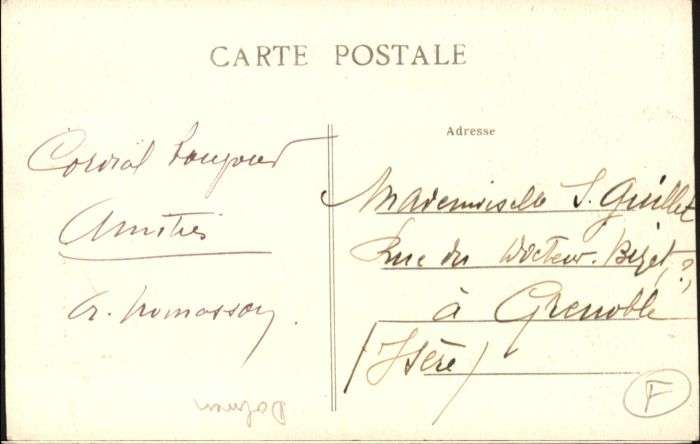 CARTE POSTALE
Adresse
Cordial bonjour
Amitiés
Mademoiselle S. Guillet
Rue du Docteur Bizet, ?,
à Grenoble
(Isère)
F
Dolmen